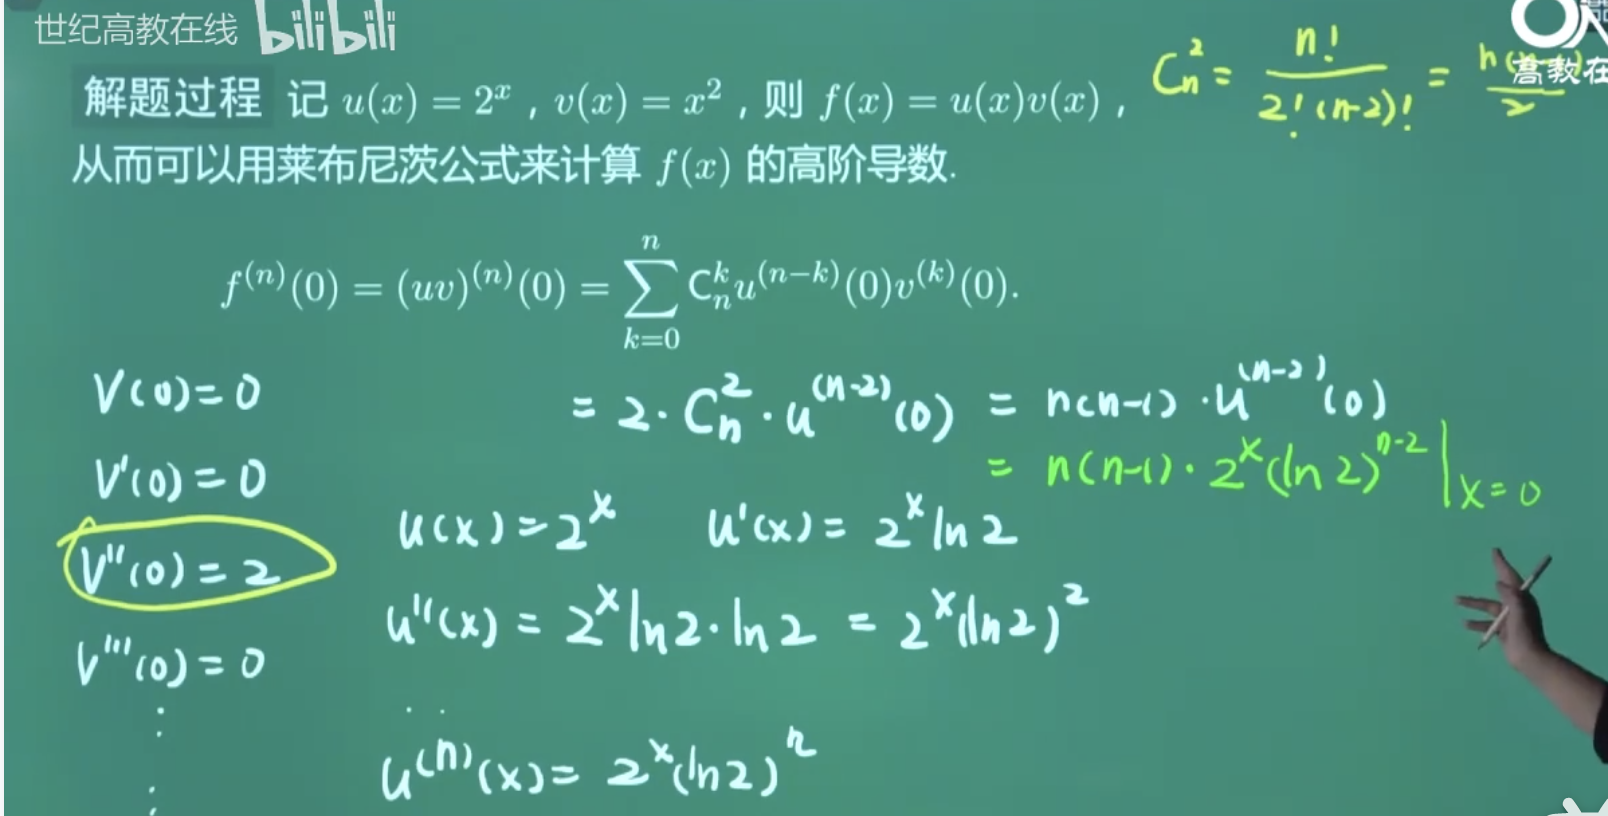 世纪高教在线 bilibili
高教在
解题过程 记 u(x) = 2^x , v(x) = x^2 , 则 f(x) = u(x)v(x) ,
C_n^2 = n! / 2!(n-2)! =
从而可以用莱布尼茨公式来计算 f(x) 的高阶导数.
f^(n)(0) = (uv)^(n)(0) = ∑_{k=0}^{n} C_n^k u^(n−k)(0)v^(k)(0).
V(0)=0
= 2·C_n^2·u^(n-2)(0) = n(n-1)·u^(n-2)(0)
V'(0)=0
= n(n-1)·2^x(ln2)^n-2 |_x=0
u(x)=2^x u'(x)=2^x ln2
V''(0)=2
u''(x)=2^x ln2·ln2 = 2^x(ln2)^2
V'''(0)=0
⋮
. .
u^(n)(x)=2^x(ln2)^n
⋮